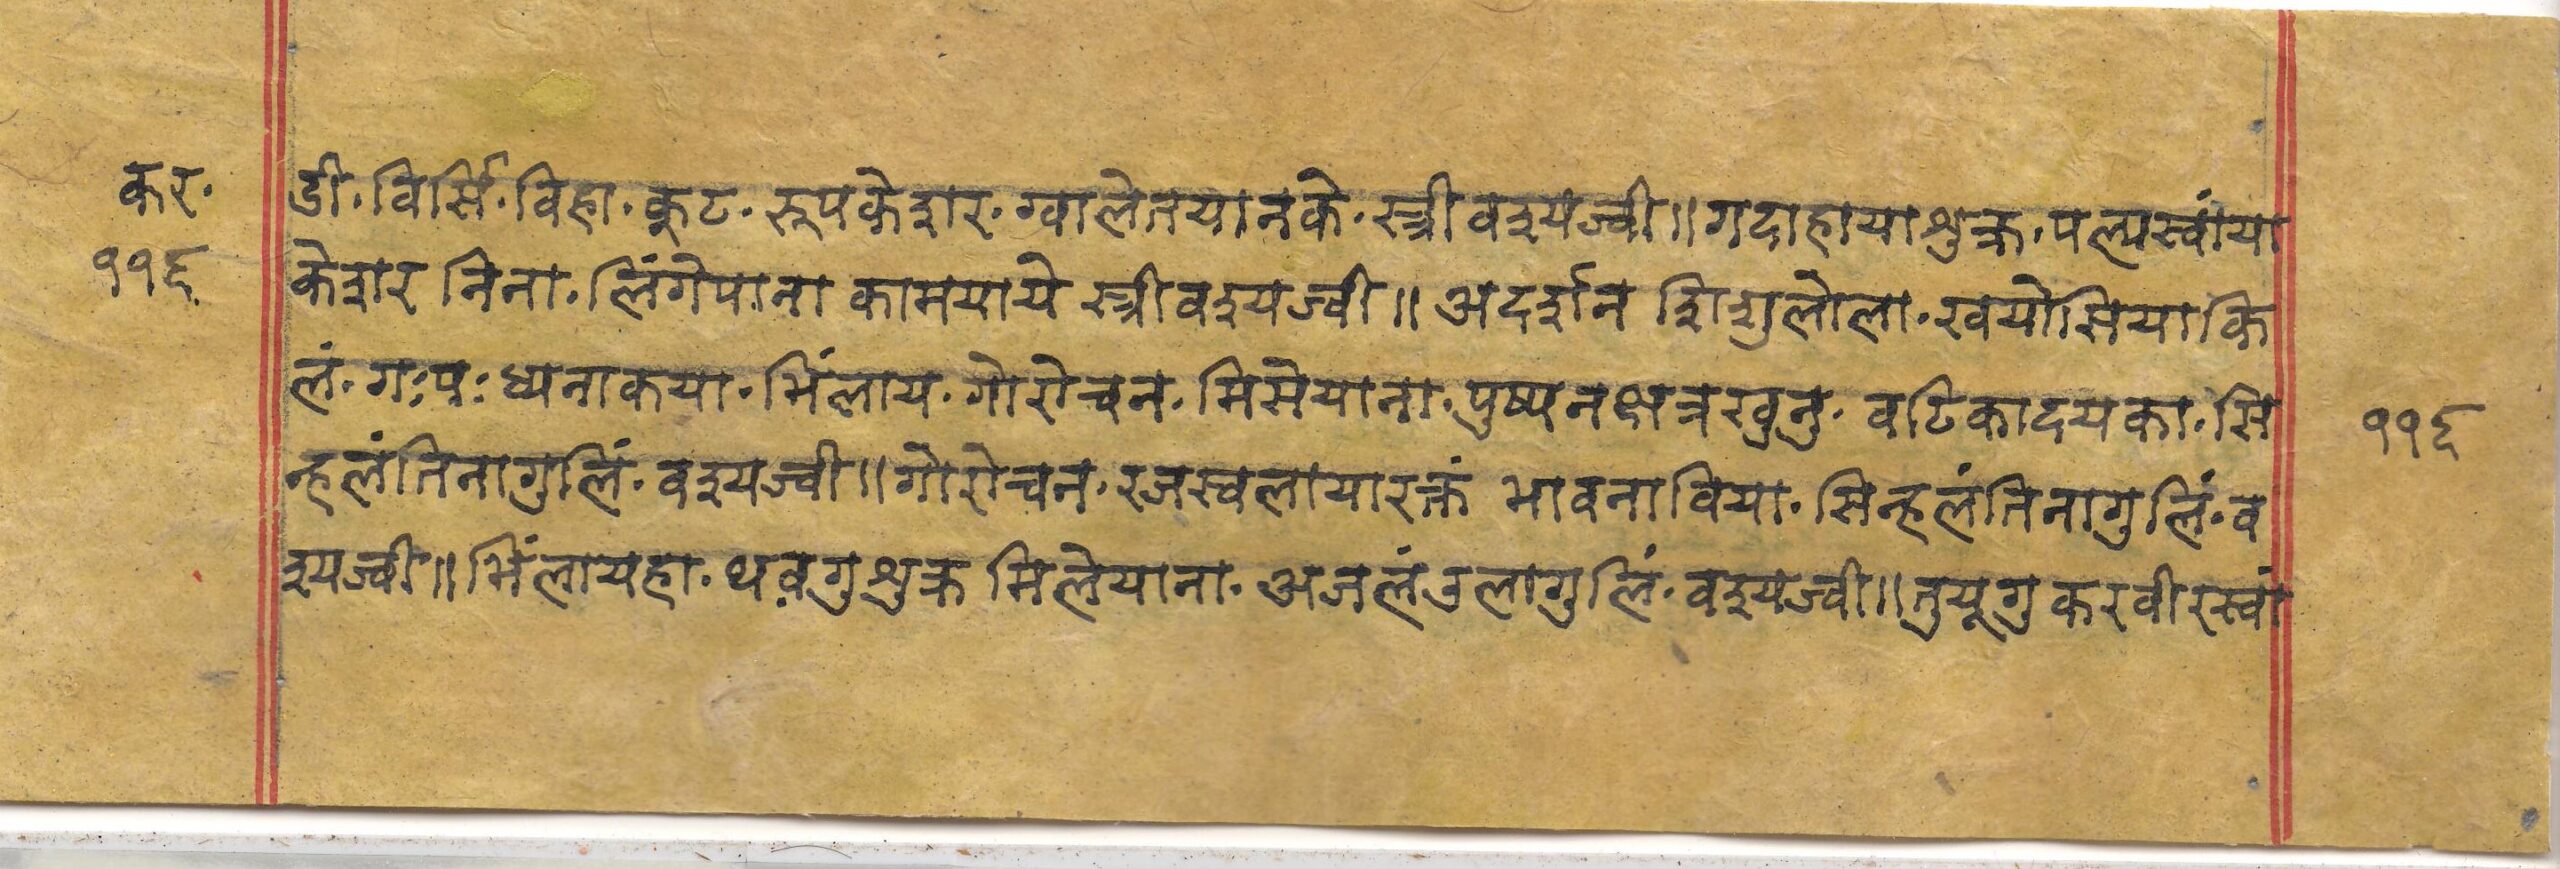 कर· डी·विर्सि·विहा·कूट·रूपकेशर·ग्वालेतयानके·स्त्रीवश्यज्वी॥गदाहायाश्रुक्र·पल्पस्वांया
११६ केशर निना·लिंगेपाना कामयाये स्त्रीवश्यज्वी॥ अदर्शन शिशुलोला·खयोसियाकि
लं·गःपःध्यनाकया·भिंलाय·गोरोचन·मिसेयाना·पुष्पनक्षत्रखुनु·वटिकादयका·सि ११६
न्हलंतिनागुलिं·वश्यज्वी॥गोरोचन·रजस्वलायारक्तं भावनाविया·सिन्हलंतिनागुलिं·व
श्यज्वी॥भिंलायहा·थवगुश्रुक्र मिलेयाना·अजलंउलागुलिं·वश्यज्वी॥तुयूगु करवीरस्वां